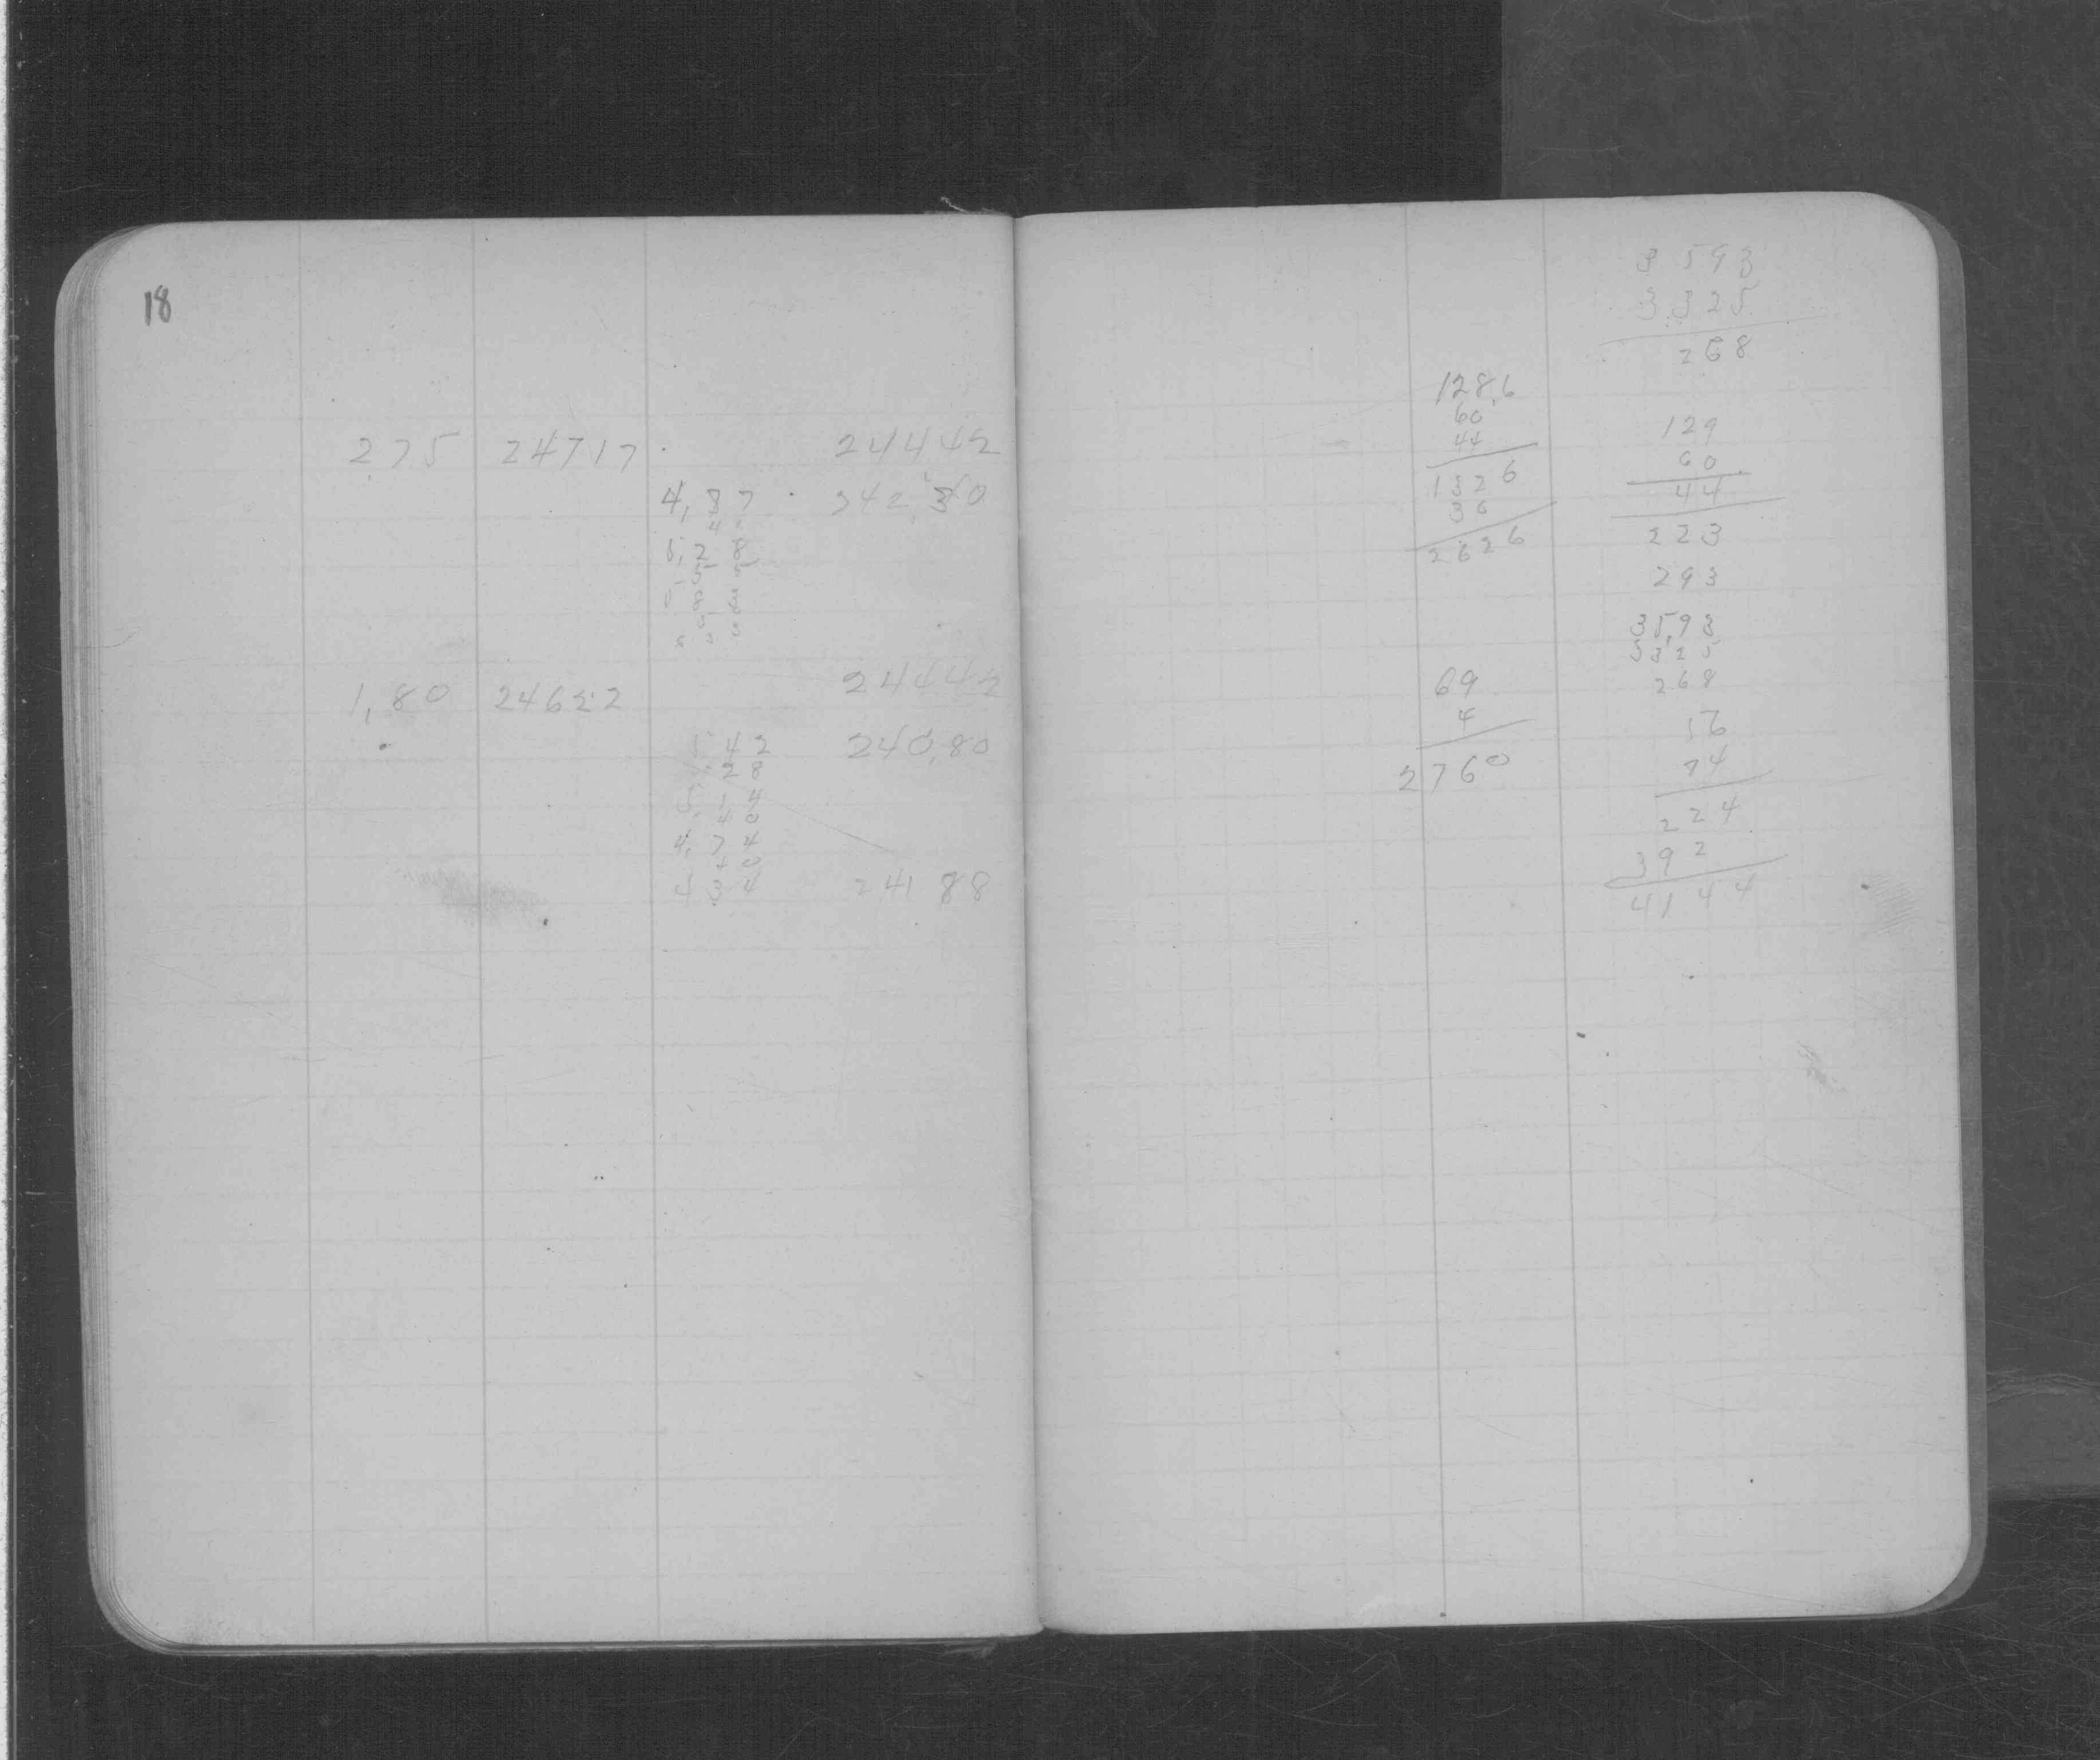 18
275 24717 24442
4,87 342,30
5,28
1,80 24622 24442
42 240,80
28
4,74
4 3 4 241 88
3 593
3 325
268
128,6
60
44
1326
36
2626
129
60
44
223
293
35,93
3325
268
69
4
2760
56
74
224
392
4144